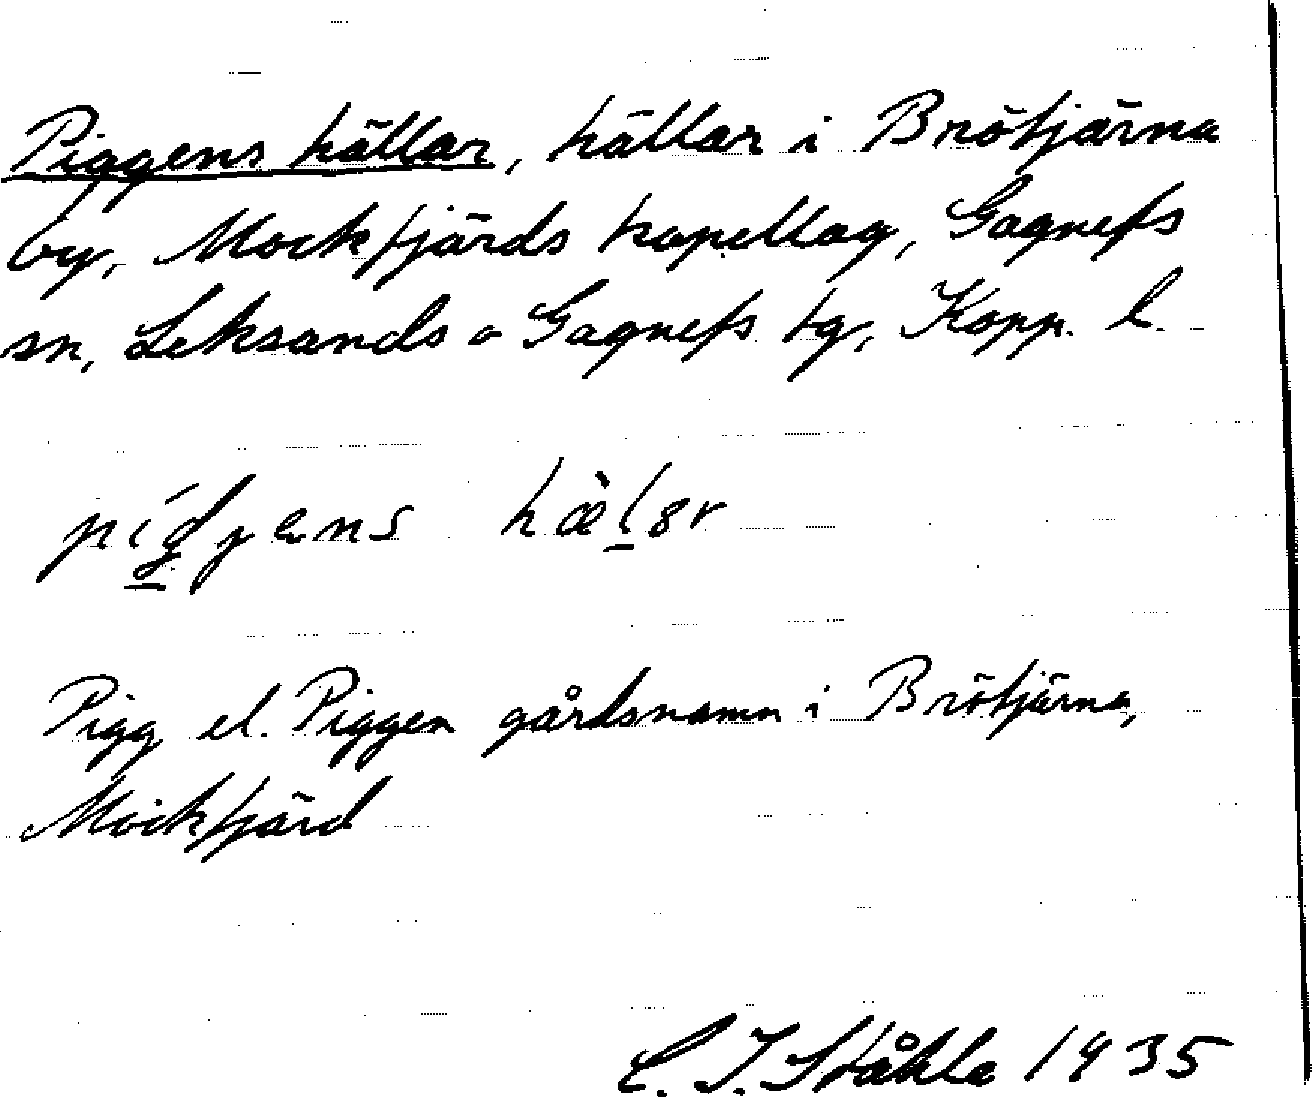 Piggens hällar, hällar i Brötjärna
by, Mockfjärds kapellag, Gagnefs
sn, Leksands o Gagnefs tg, Kopp. l.
Pigg el. Piggen gårdsnamn i Brötjärna,
Mockfjärd
C. I. Ståhle 1935